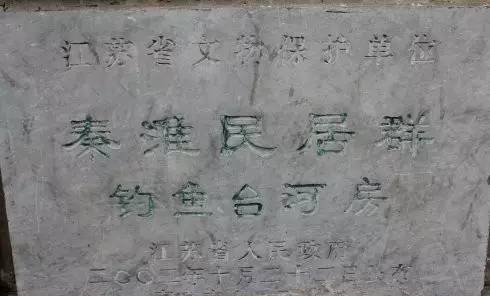 江苏省文物保护单位
秦淮民居群
钓鱼台河房
江苏省人民政府
二〇〇二年十月二十二日公布